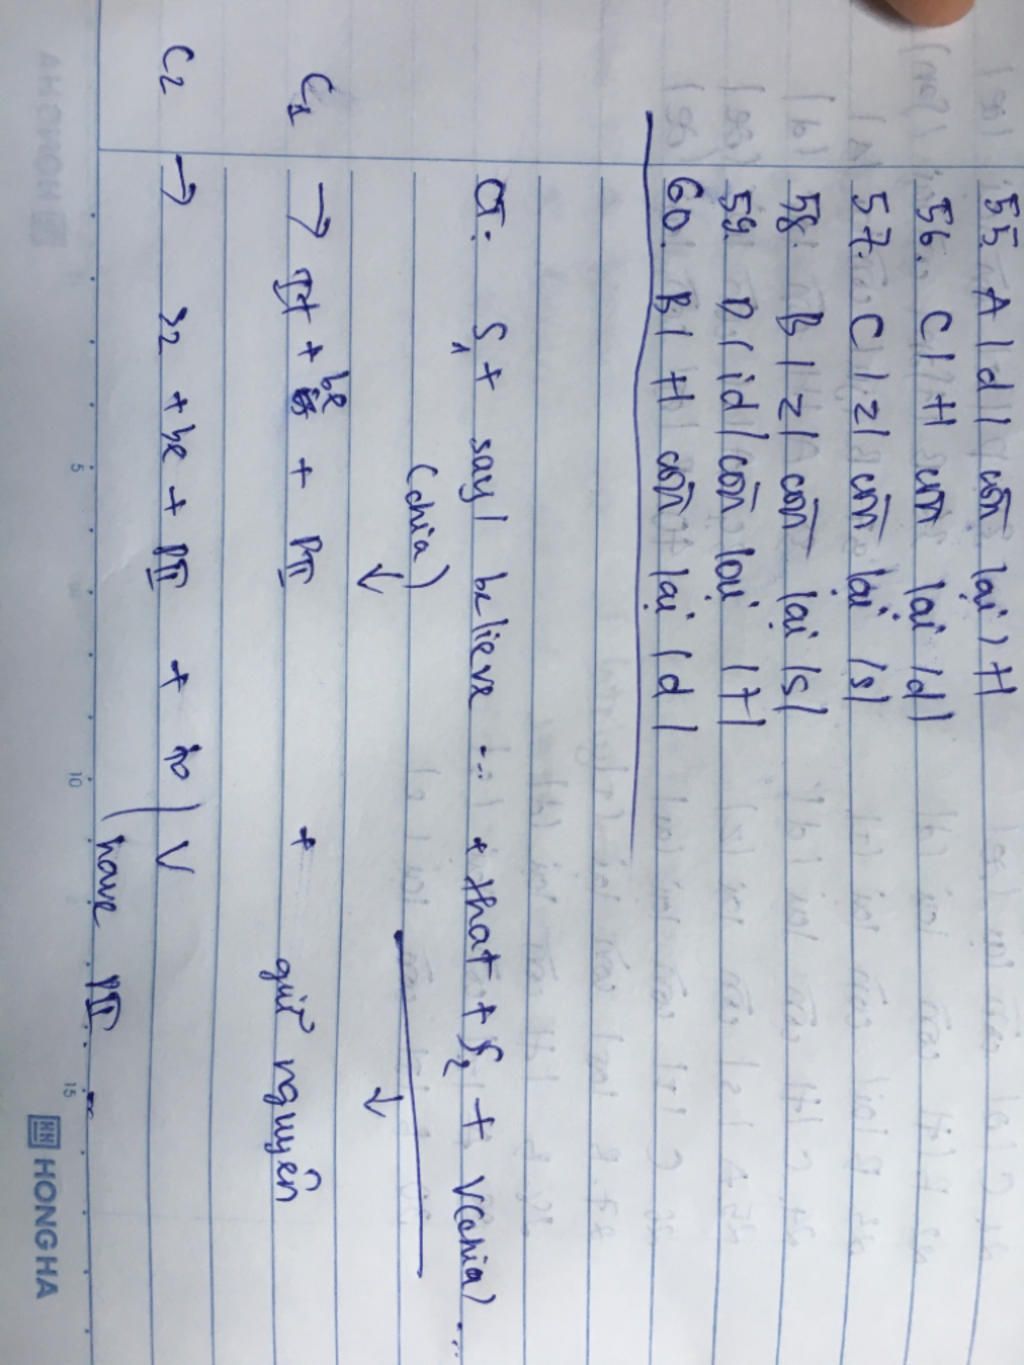 55. A /d/ còn lại /t/
56. C /t/ còn lại /d/
57. C /z/ còn lại /s/
58. B /z/ còn lại /s/
59. D /id/ còn lại /t/
60. B /t/ còn lại /d/
CT: S1 + say/ believe ... + that + S2 + V(chia) ...
(chia)
C1 → It + be + PII + giữ nguyên
C2 → S2 + be + PII + to / V
have PII
5 10 15
HONGHA